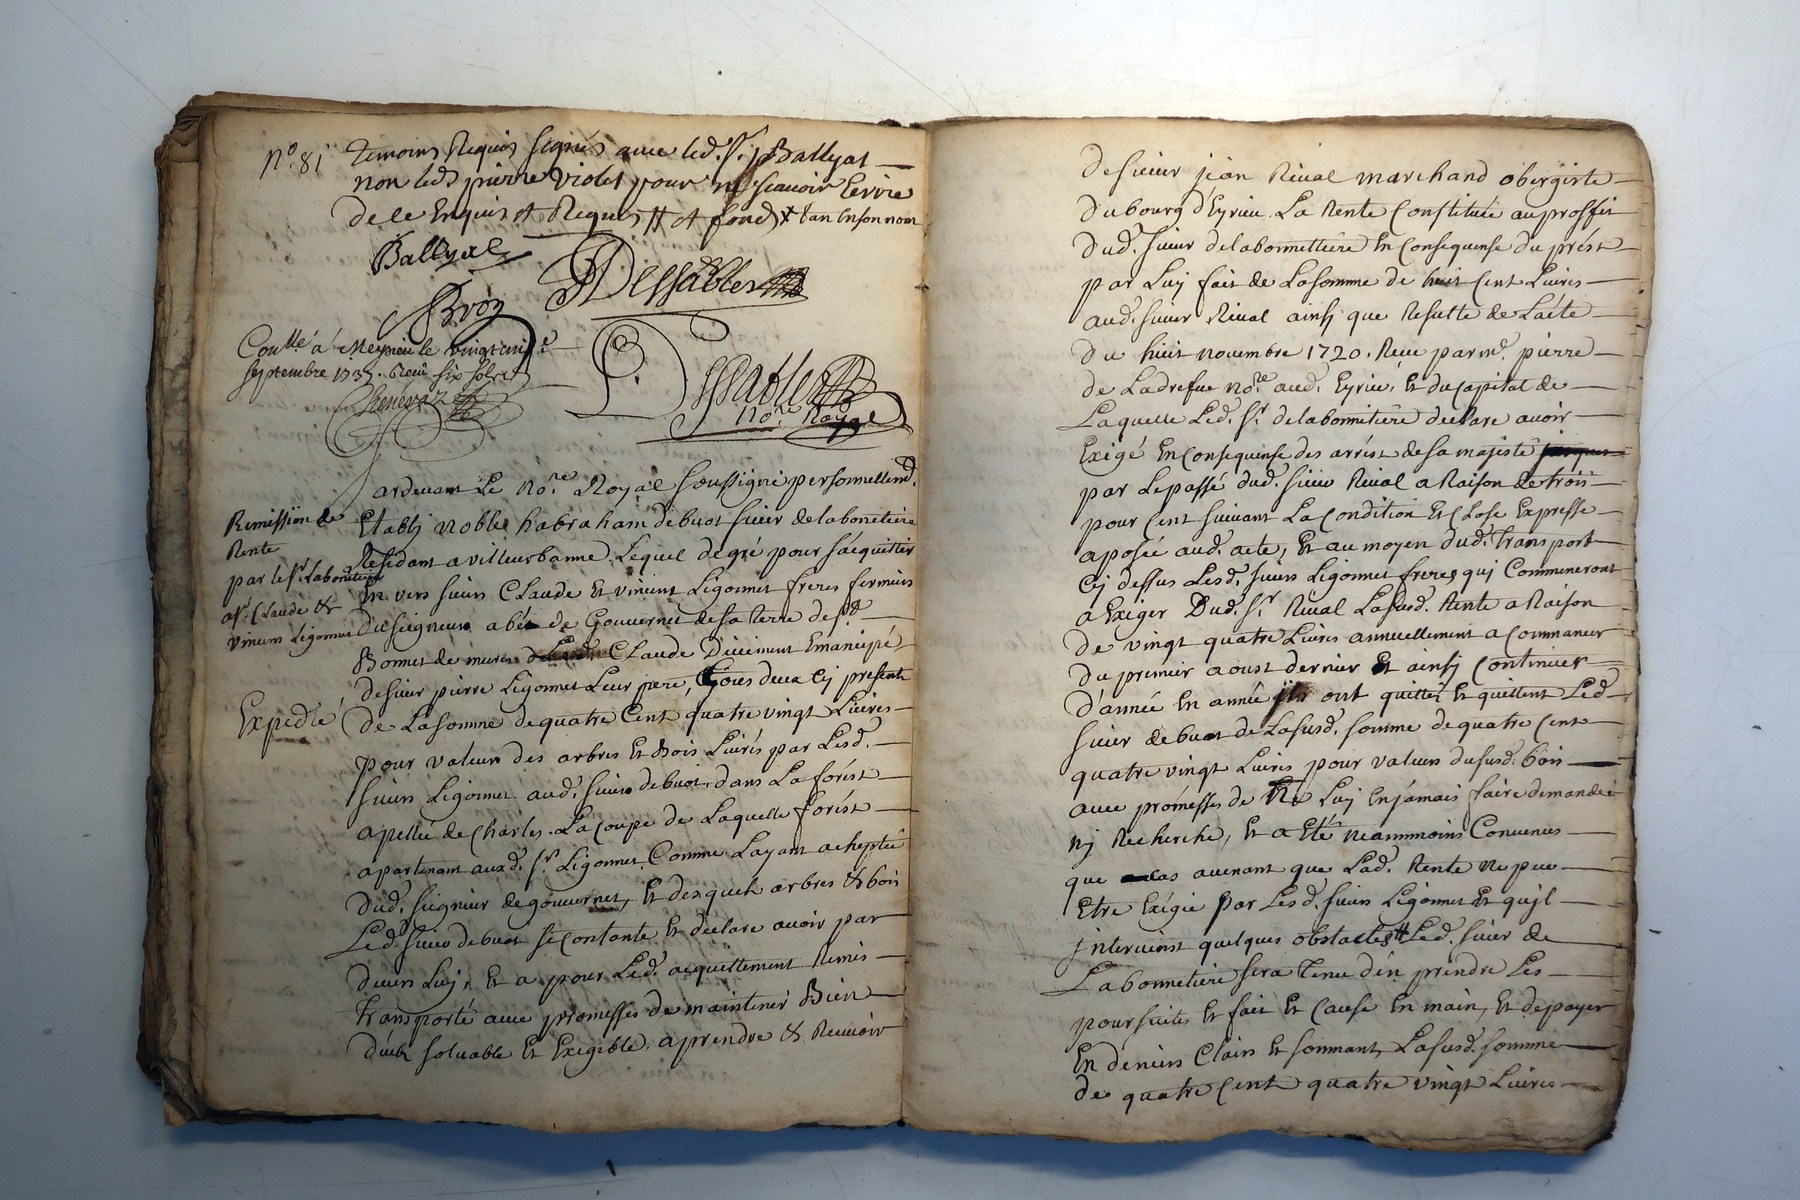 N.º 81
temoins Requis signés avec led. Sr. Ballyat
non led pierre violet pour ne scauoir Ecrire
de ce Enquis et Requis # et fond x tan en son nom
Ballyat
Dessables
Broz
Conllé á Meyzieu le vingt
septembre 173 . Receu six sols
Chenevaz
Dessables
No.re Royal
Pardeuant Le No.re Royal soussigné personnellemd.
Remission de
Rente
par le sr. Labonetiere
a sr. Claude &
vincent Ligonnet
Etablj noble habraham debuot sieur de labonetiere
Residant a villeurbanne. Lequel de gré pour s'acquitter
En vers sieurs Claude Et vincent Ligonnet freres fermiers
du seigneur abé de Gouvernet de sa terre de st.
Bonnet de mures Claude Diuement Emancipé
de sieur pierre Ligonnet Leur pere, tous deux Cy present
Expedié
de La somme de quatre Cent quatre vingt Liures
pour valeur des arbres Et Bois Liurés par Lesd.
sieurs Ligonnet aud. sieur debuot dans La forést
apellée de Charles. La Coupe de Laquelle forést
apartenant auxd. srs. Ligonnet Comme Layant acheptée
dud. seigneur de gouuernet, Et desquels arbres & bois
Led. sieur debuot se Contante Et declare auoir par
deuers Luy, Et a pour Led. acquittement Remis
transporté auec promesses de maintenir Bien
düeb soluable Et Exigible, a prendre & Receuoir
de sieur jean Riual marchand obergiste
du bourg d'Eyrieu. La Rente Constituée au proffit
dud. sieur delabonnettiere En Consequense du prést
par Luy fait de La somme de huit Cent Liures
aud. sieur Riual ainsj que Resulte de Lácte
du huit novembre 1720. Receu par me. pierre
de Ladrefue no.re aud. Eyrieu, Et du Capital de
Laquelle Led. sr. de labonnetiere declare auoir
Exigé En Consequense des arrést de sa majesté
par Le passé dud. sieur Riual a Raison de trois
pour Cent suiuant La Condition Et Close Expresse
aposée aud. acte, Et au moyen dud. transport
Cy dessus Lesd. sieurs Ligonnet freres qui Commenceront
a Exiger Dud. sr. Riual La susd. Rente a Raison
de vingt quatre Liures annuellement a Commancer
du premier aoust dernier Et ainsj Continuer
d'année En année ils ont quitté, Et quittent Led
sieur debuot de La susd. somme de quatre Cent
quatre vingt Liures pour valeur du susd. bois
auec promesses de Ne Luy En jamais faire demande
ny Recherche, Et a Eté neammoins Conuenus
que cas auenant que Lad. Rente Ne peu
Etre Exigée par Lesd. sieurs Ligonnet Et qu'jl
jnteruient quelques obstacles # Led. sieur de
Labonnetiere sera tenu d'en prendre Les
poursuites Et fait Et Cause En main, Et de payer
En deniers Clairs Et sonnant, La susd. somme
de quatre Cent quatre vingt Liures